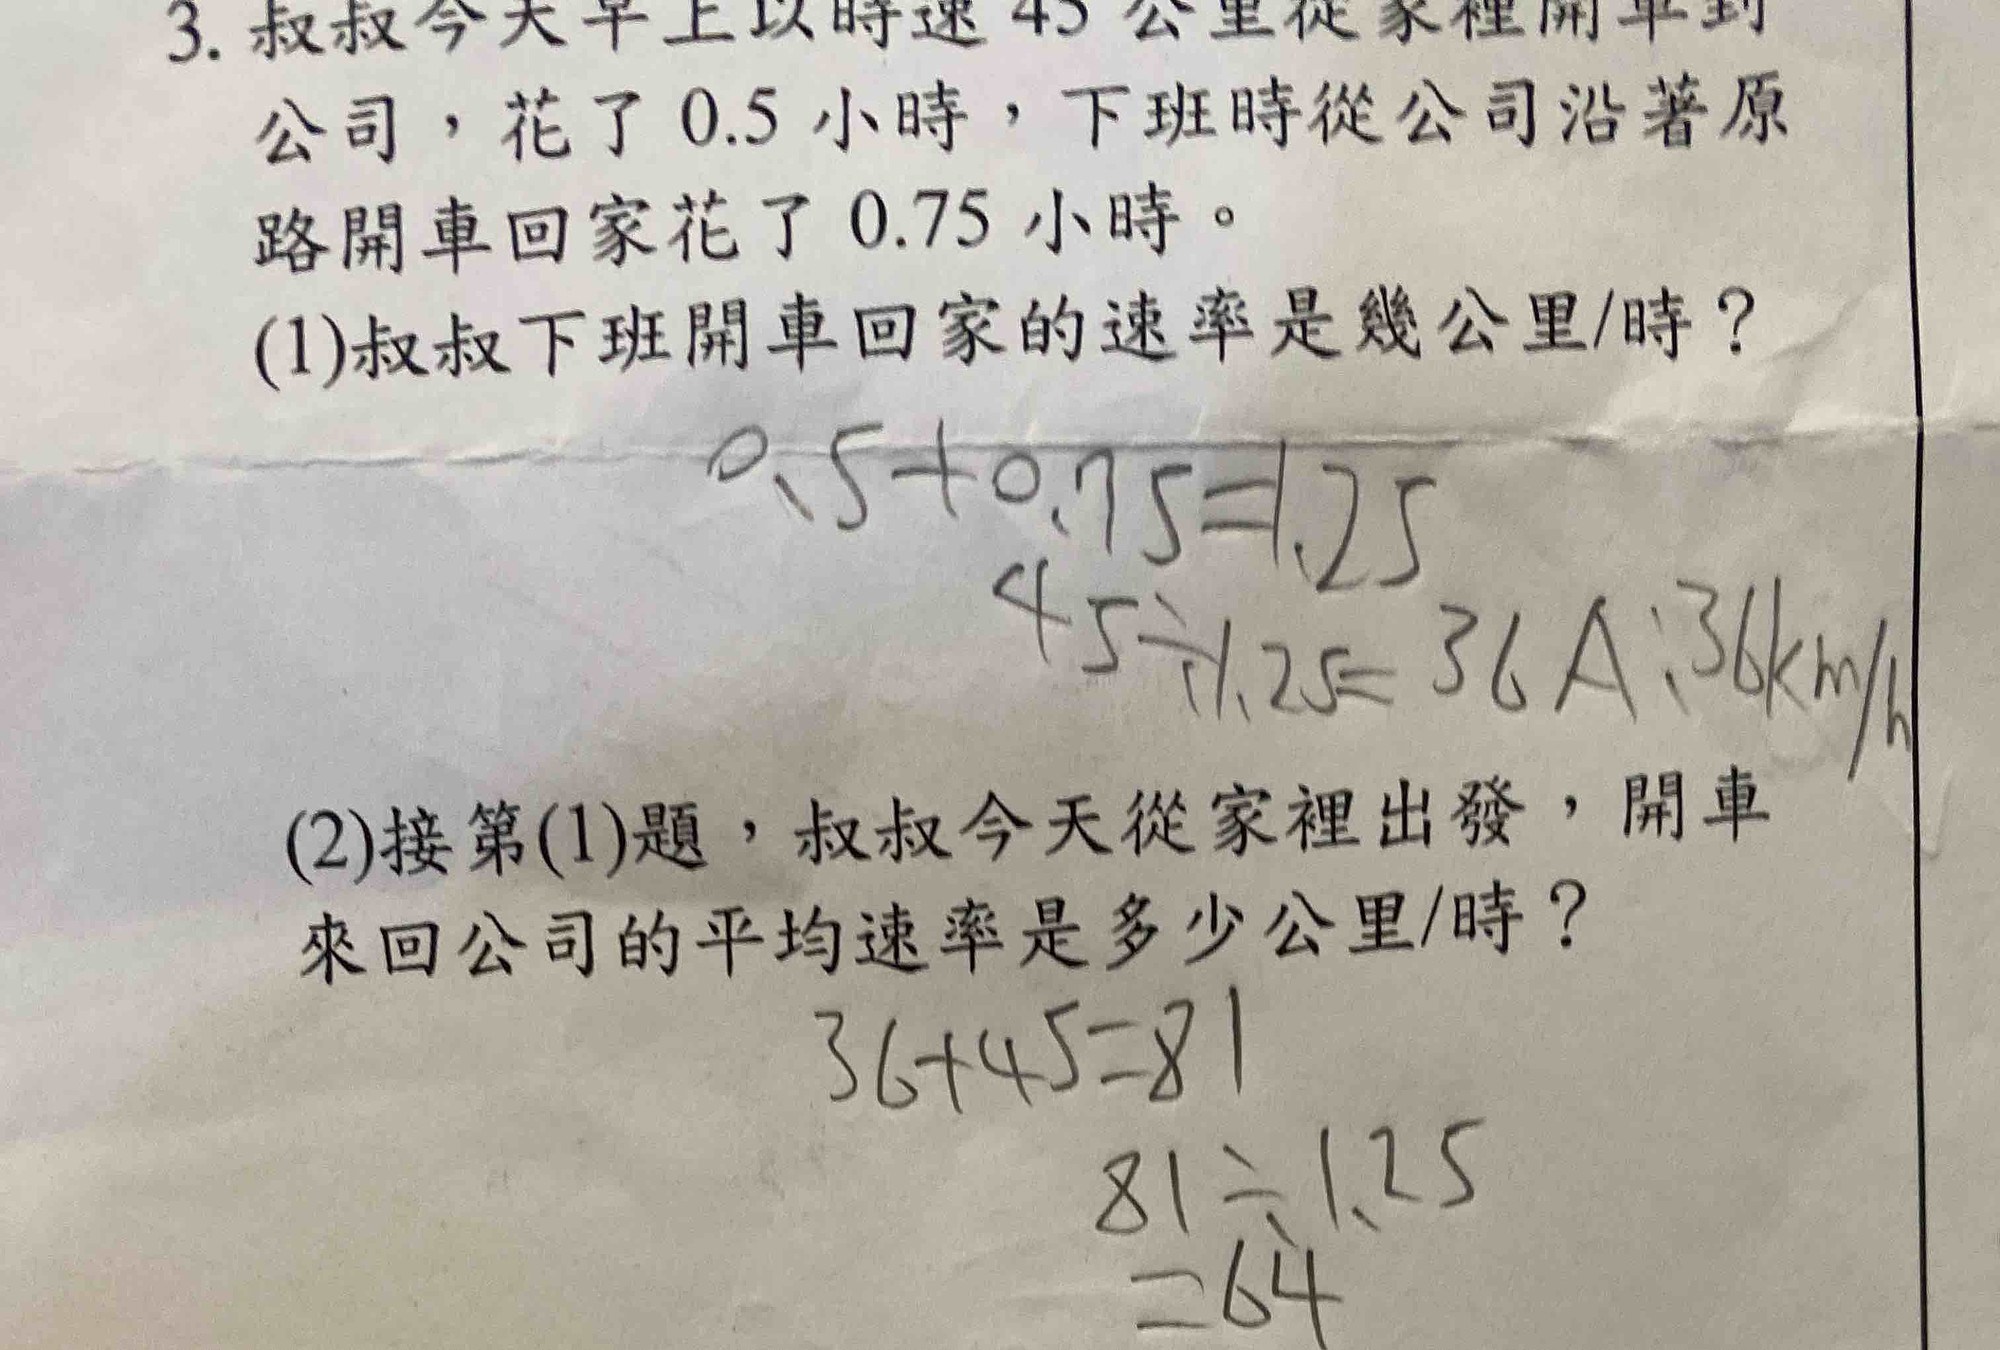 3. 叔叔今天早上以時速 45 公里從家裡開車到
公司，花了 0.5 小時，下班時從公司沿著原
路開車回家花了 0.75 小時。
(1)叔叔下班開車回家的速率是幾公里/時？
0.5+0.75=1.25
45÷1.25=36 A:36km/h
(2)接第(1)題，叔叔今天從家裡出發，開車
來回公司的平均速率是多少公里/時？
36+45=81
81÷1.25
=64